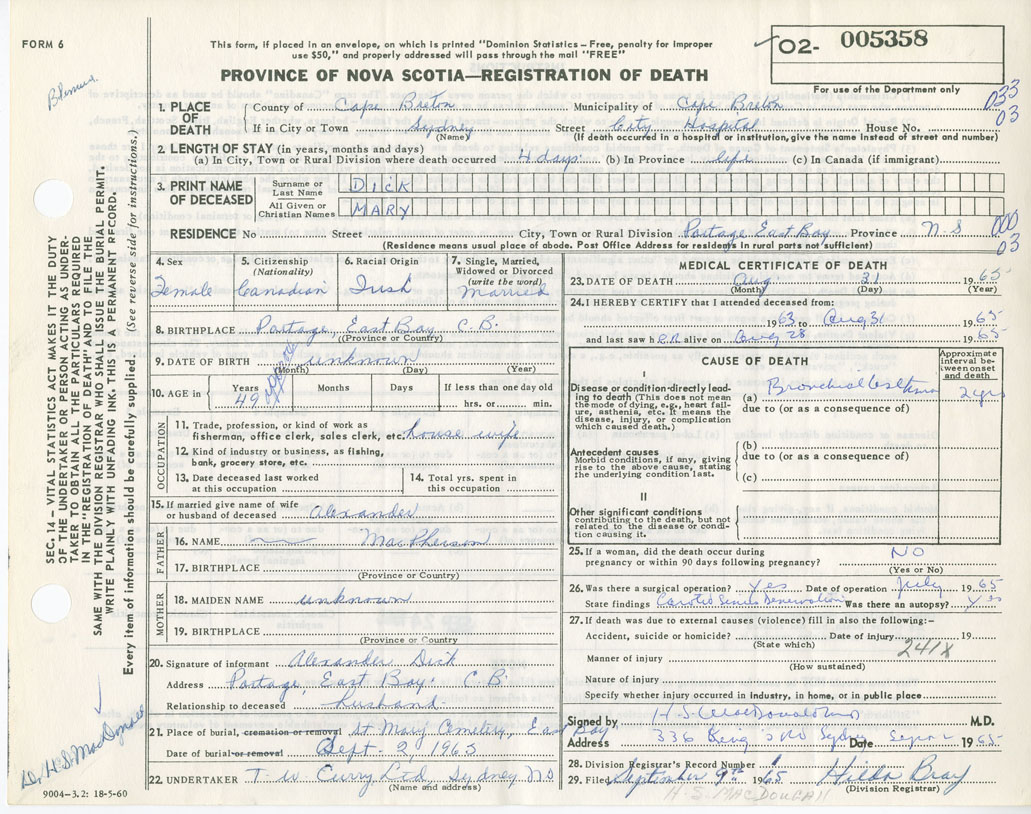 FORM 6
This form, if placed in an envelope, on which is printed "Dominion Statistics – Free, penalty for improper
use $50," and properly addressed will pass through the mail "FREE"
PROVINCE OF NOVA SCOTIA—REGISTRATION OF DEATH
02- 005358
For use of the Department only
033
03
1. PLACE OF DEATH
County of Cape Breton Municipality of Cape Breton
If in City or Town Sydney Street City Hospital House No.
(Name) (If death occurred in a hospital or institution, give the name instead of street and number)
2. LENGTH OF STAY (in years, months and days)
(a) In City, Town or Rural Division where death occurred 4 days (b) In Province life (c) In Canada (if immigrant)
3. PRINT NAME OF DECEASED
Surname or Last Name DICK
All Given or Christian Names MARY
RESIDENCE No Street City, Town or Rural Division Portage East Bay Province N.S
000
03
(Residence means usual place of abode. Post Office Address for residents in rural parts not sufficient)
4. Sex Female
5. Citizenship (Nationality) Canadian
6. Racial Origin Irish
7. Single, Married, Widowed or Divorced (write the word) Married
8. BIRTHPLACE Portage, East Bay C.B.
(Province or Country)
9. DATE OF BIRTH unknown
(Month) (Day) (Year)
10. AGE in Years 49 Months Days If less than one day old
hrs. or min.
OCCUPATION
11. Trade, profession, or kind of work as
fisherman, office clerk, sales clerk, etc. house wife
12. Kind of industry or business, as fishing,
bank, grocery store, etc.
13. Date deceased last worked
at this occupation
14. Total yrs. spent in
this occupation
15. If married give name of wife
or husband of deceased Alexander
FATHER
16. NAME MacPherson
17. BIRTHPLACE
(Province or Country)
MOTHER
18. MAIDEN NAME unknown
19. BIRTHPLACE
(Province or Country)
20. Signature of informant Alexander Dick
Address Portage, East Bay. C.B.
Relationship to deceased husband
21. Place of burial, cremation or removal St Mary Cemetery, East Bay
Date of burial or removal Sept. 2, 1965
22. UNDERTAKER T W Curry Ltd, Sydney NS
(Name and address)
9004-3.2: 18-5-60
MEDICAL CERTIFICATE OF DEATH
23. DATE OF DEATH Aug 31 1965
(Month) (Day) (Year)
24. I HEREBY CERTIFY that I attended deceased from:
1963 to Aug 31 1965
and last saw h er alive on Aug 28 1965
CAUSE OF DEATH
Approximate interval between onset and death
I
Disease or condition directly leading to death (This does not mean the mode of dying, e.g., heart failure, asthenia, etc. It means the disease, injury, or complication which caused death.)
(a) Bronchial Asthma 2 yrs
due to (or as a consequence of)
Antecedent causes
Morbid conditions, if any, giving rise to the above cause, stating the underlying condition last.
(b)
due to (or as a consequence of)
(c)
II
Other significant conditions
contributing to the death, but not related to the disease or condition causing it.
25. If a woman, did the death occur during
pregnancy or within 90 days following pregnancy? NO
(Yes or No)
26. Was there a surgical operation? Yes Date of operation July 1965
State findings Carotid Sinus Denervation Was there an autopsy? Yes
27. If death was due to external causes (violence) fill in also the following:–
Accident, suicide or homicide? Date of injury 19
(State which)
241X
Manner of injury
(How sustained)
Nature of injury
Specify whether injury occurred in industry, in home, or in public place
Signed by H.S. MacDonald M.D.
Address 336 King's Rd Sydney Date 1965
28. Division Registrar's Record Number
29. Filed September 9th 1965 Hilda Bray
(Division Registrar)
H. S. MACDOUGALL
SEC. 14 – VITAL STATISTICS ACT MAKES IT THE DUTY
OF THE UNDERTAKER OR PERSON ACTING AS UNDER-
TAKER TO OBTAIN ALL THE PARTICULARS REQUIRED
IN THE "REGISTRATION OF DEATH" AND TO FILE THE
SAME WITH THE DIVISION REGISTRAR WHO SHALL ISSUE THE BURIAL PERMIT.
WRITE PLAINLY WITH UNFADING INK. THIS IS A PERMANENT RECORD.
Every item of information should be carefully supplied. (See reverse side for instructions.)